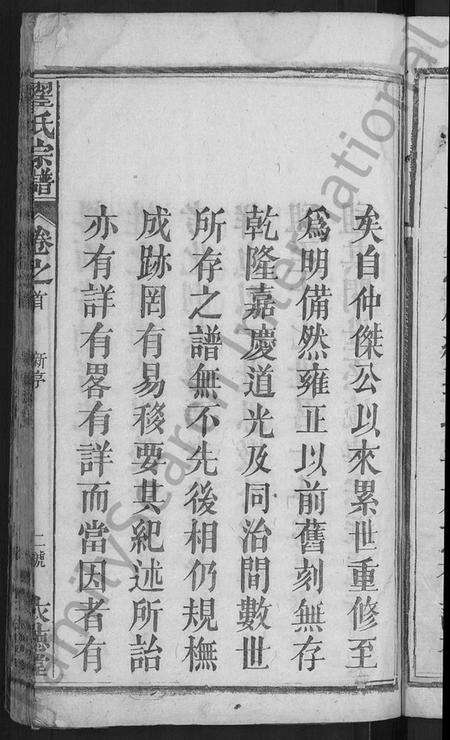 矣自仲傑公以來累世重修至
爲明備然雍正以前舊刻無存
乾隆嘉慶道光及同治間數世
所存之譜無不先後相仍規橅
成跡罔有易移要其紀述所詒
亦有詳有畧有詳而當因者有
翟氏宗譜
卷之首
新序
二號
FamilySearch International